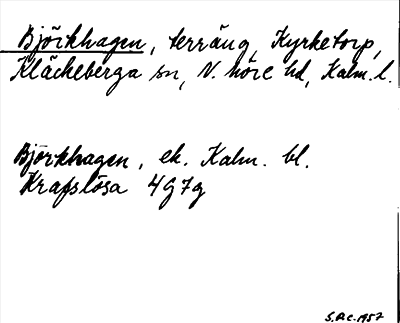 Björkhagen, terräng, Kyrketorp,
Kläckeberga sn, N. Möre hd, Kalm. l.
Björkhagen, ek. Kalm. bl.
Krafslösa 4G7g
S.R.C. 1957